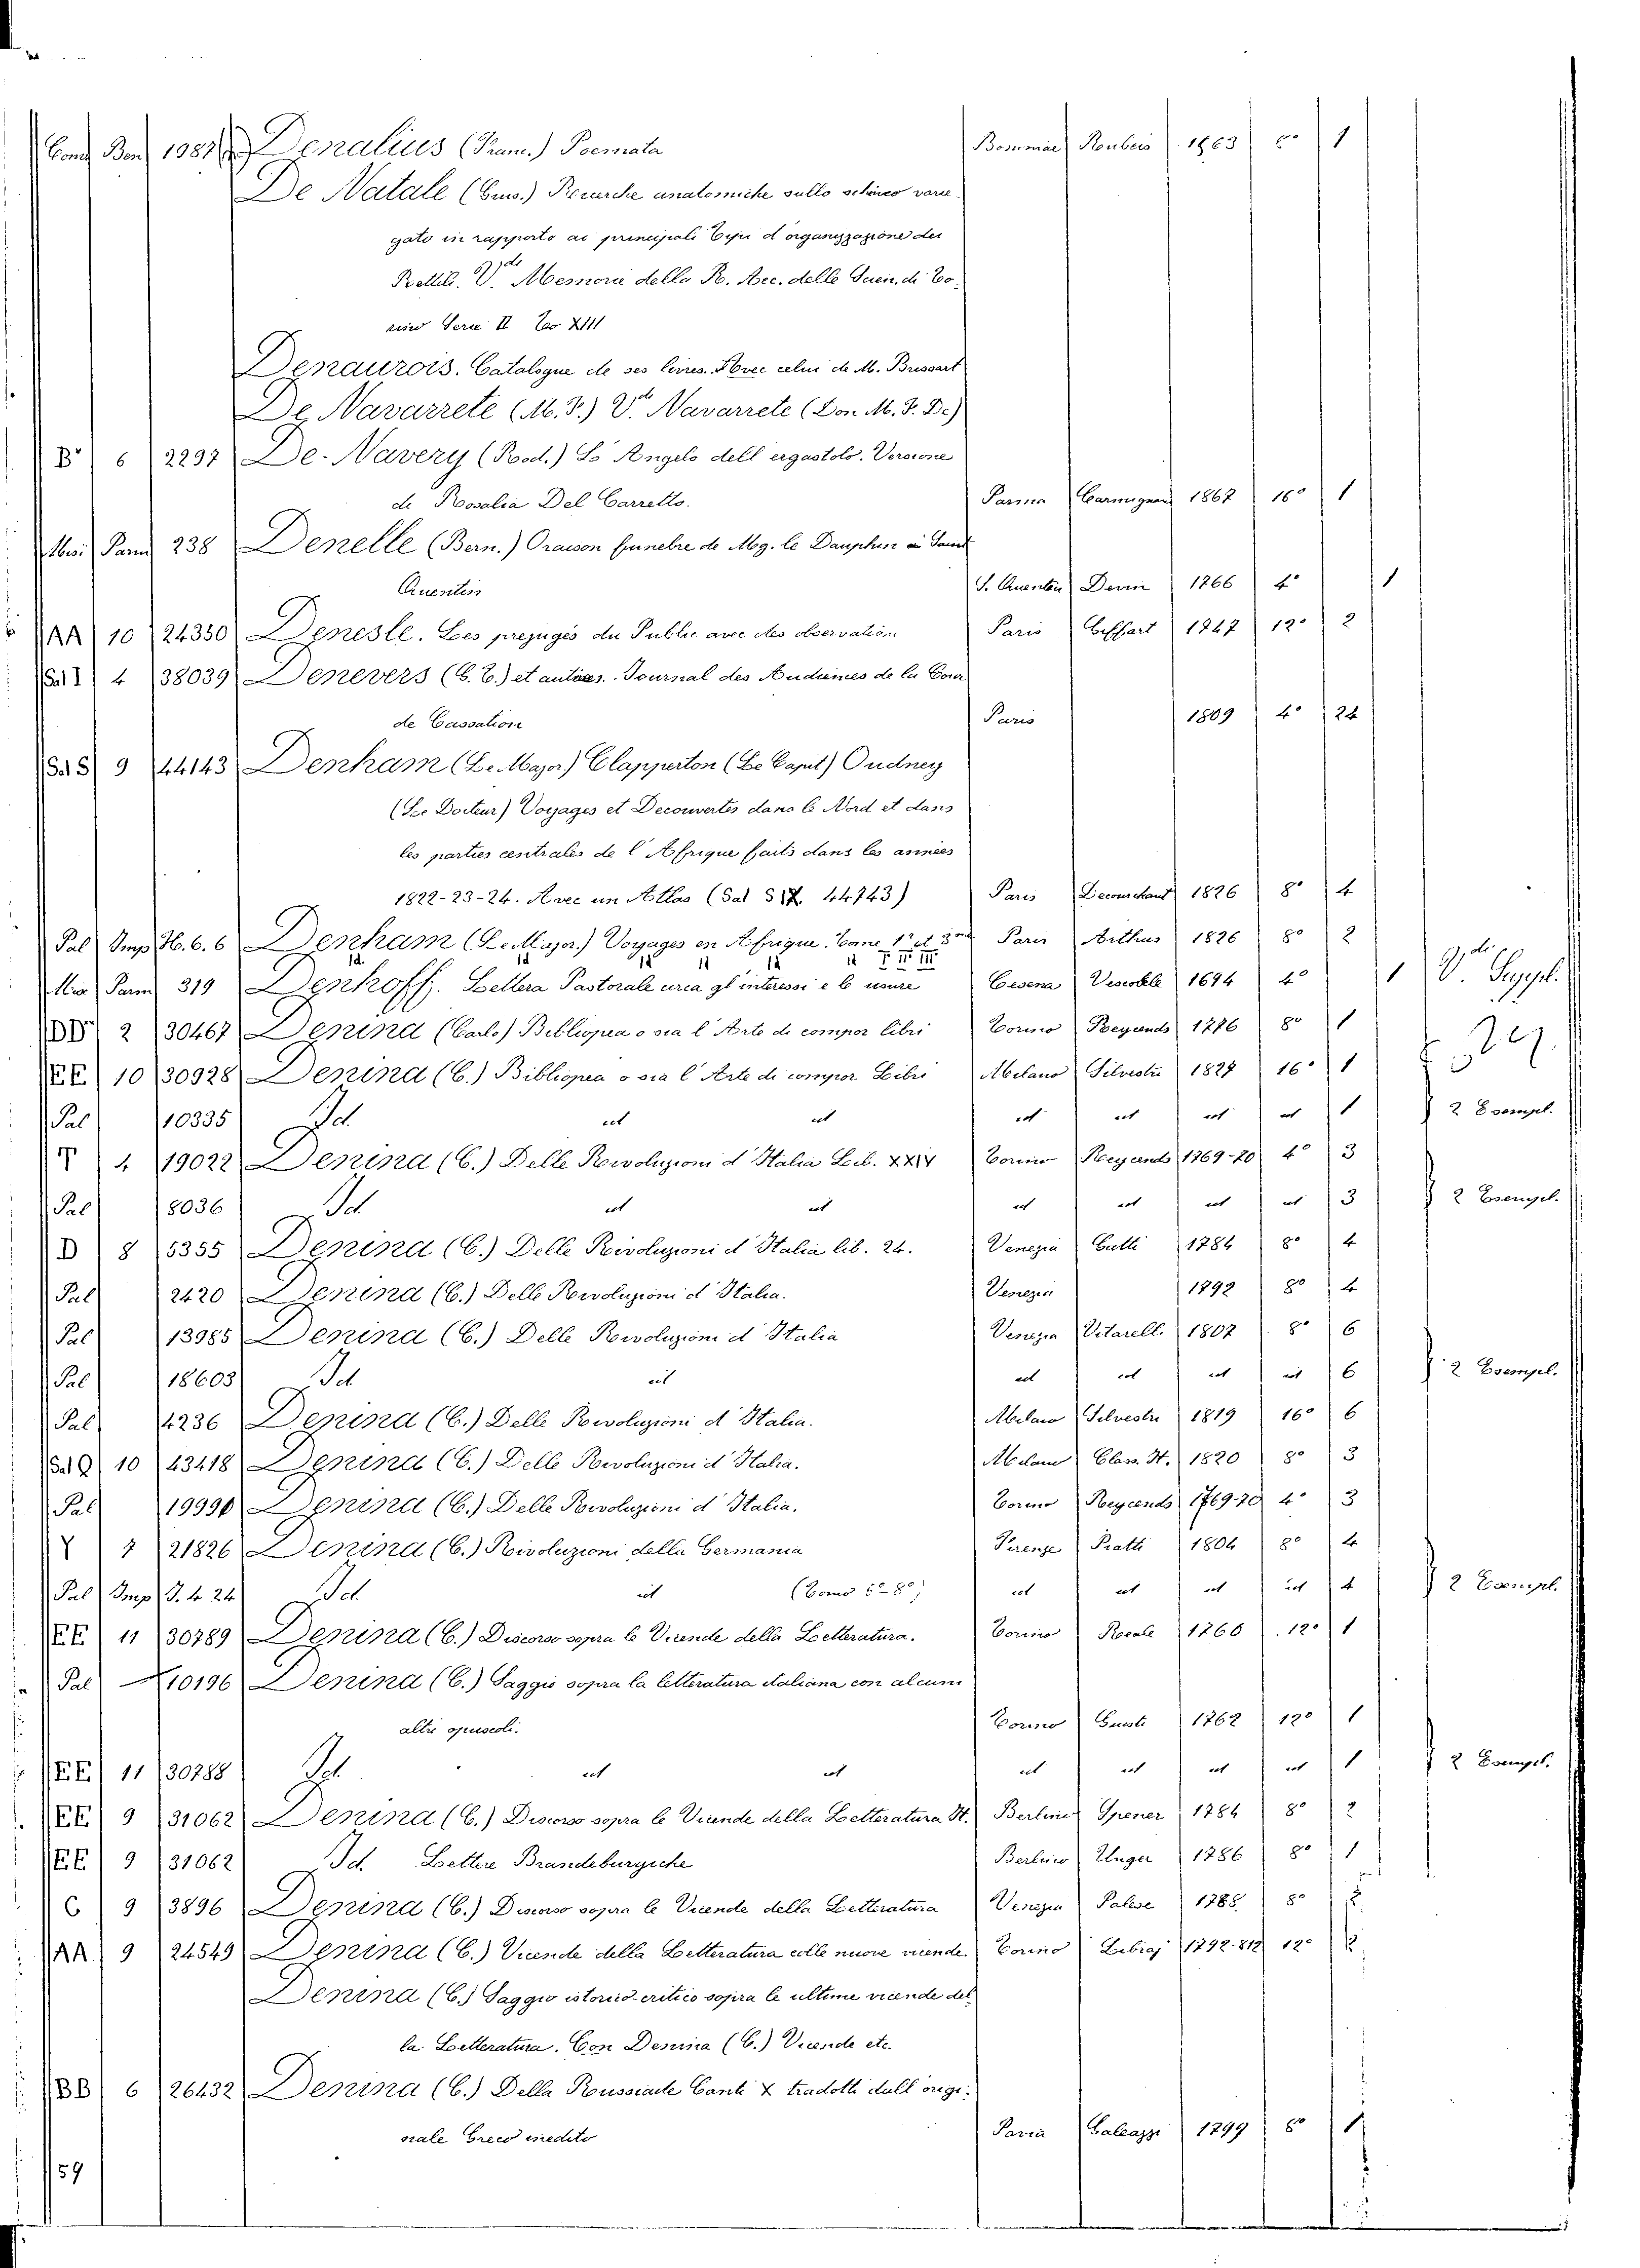 Denalius (Fran.) Poemata Bononiae Roubeis 1563 8º 1
De Natale (Gius.) Ricerche anatomiche sullo scinco varie
gato in rapporto ai principali tipi d'organizzazione dei
Rettili. Vdi Memorie della R. Acc. delle Scien. di To
rino Serie II To XIII
Denaurois. Catalogue de ses livres. Avec celui de M. Brissart
De Navarrete (M. F.) Vdi Navarrete (Don M. F. De)
B' 6 2297 De-Navery (Rod.) L'Angelo dell'ergastolo. Versione
di Rosalia Del Carretto. Parma Carmignani 1867 16º 1
Misc Parm 238 Denelle (Bern.) Oraison funebre de Mog. le Dauphin a Saint
Quentin S. Quentin Devin 1766 4º 1
AA 10 24350 Denesle. Les prejugés du Public avec des observation Paris 1747 12º 2
Sal I 4 38039 Denevers (C. C.) et autres. Journal des Audiences de la Cour
de Cassation Paris 1809 4º 24
Sal S 9 44143 Denham (Le Major) Clapperton (Le Capit) Oudney
(Le Docteur) Voyages et Decouvertes dans le Nord et dans
les parties centrales de l'Afrique faits dans les années
1822-23-24. Avec un Atlas (Sal S 44743) Paris 1826 8º 4
Pal Imp H. 6. 6 Denham (Le Major.) Voyages en Afrique. Tome 1r et 3me Paris Arthus 1826 8º 2
I II III
Misc Parm 319 Denhoff. Lettera Pastorale circa gl'interessi e le usure Cesena Vescovile 1694 4º 1 Vdi Suppl.
DD 2 30467 Denina (Carlo) Bibliopea o sia l'Arte di compor libri Torino Reycends 1776 8º 1
EE 10 30928 Denina (C.) Bibliopea o sia l'Arte di compor Libri Milano Silvestri 1827 16º 1
Pal 10335 Id. id id id id id id 1 2 Esempl.
T 4 19022 Denina (C.) Delle Rivoluzioni d'Italia Lib. XXIV Torino Reycends 1769-70 4º 3
Pal 8036 Id. id id id id id id 3 2 Esempl.
D 8 5355 Denina (C.) Delle Rivoluzioni d'Italia lib. 24. Venezia Gatti 1784 8º 4
Pal 2420 Denina (C.) Delle Rivoluzioni d'Italia. Venezia 1792 8º 4
Pal 13985 Denina (C.) Delle Rivoluzioni d'Italia Venezia Vitarell. 1807 8º 6
Pal 18603 Id id id id id id 6 2 Esempl.
Pal 4236 Denina (C.) Delle Rivoluzioni d'Italia. Milano Silvestri 1819 16º 6
Sal Q 10 43418 Denina (C.) Delle Rivoluzioni d'Italia. Milano Class. It. 1820 8º 3
Pal 19990 Denina (C.) Delle Rivoluzioni d'Italia. Torino Reycends 1769-70 4º 3
Y 7 21826 Denina (C.) Rivoluzioni della Germania Firenze Piatti 1804 8º 4
Pal Imp J. 4. 24 Id. id (Tomo 5º-8º) id id id id 4 2 Esempl.
EE 11 30789 Denina (C.) Discorso sopra le Vicende della Letteratura. Torino Reale 1760 12º 1
Pal 10196 Denina (C.) Saggio sopra la letteratura italiana con alcuni
altri opuscoli. Torino Giusti 1762 12º 1
EE 11 30788 Id. id id id id id id 1 2 Esempl.
EE 9 31062 Denina (C.) Discorso sopra le Vicende della Letteratura It. Berlino Spener 1784 8º 2
EE 9 31062 Id. Lettere Brandeburgiche Berlino Unger 1786 8º 1
C 9 3896 Denina (C.) Discorso sopra le Vicende della Letteratura Venezia Palese 1788 8º 2
AA 9 24549 Denina (C.) Vicende della Letteratura colle nuove vicende. Torino 1792-812 12º 2
Denina (C.) Saggio istorico-critico sopra le ultime vicende del
la Letteratura. Con Denina (C.) Vicende etc.
BB 6 26432 Denina (C.) Della Roussiade Canti X tradotti dall'origi
nale Greco inedito Pavia Galeazzi 1799 8º 1
159